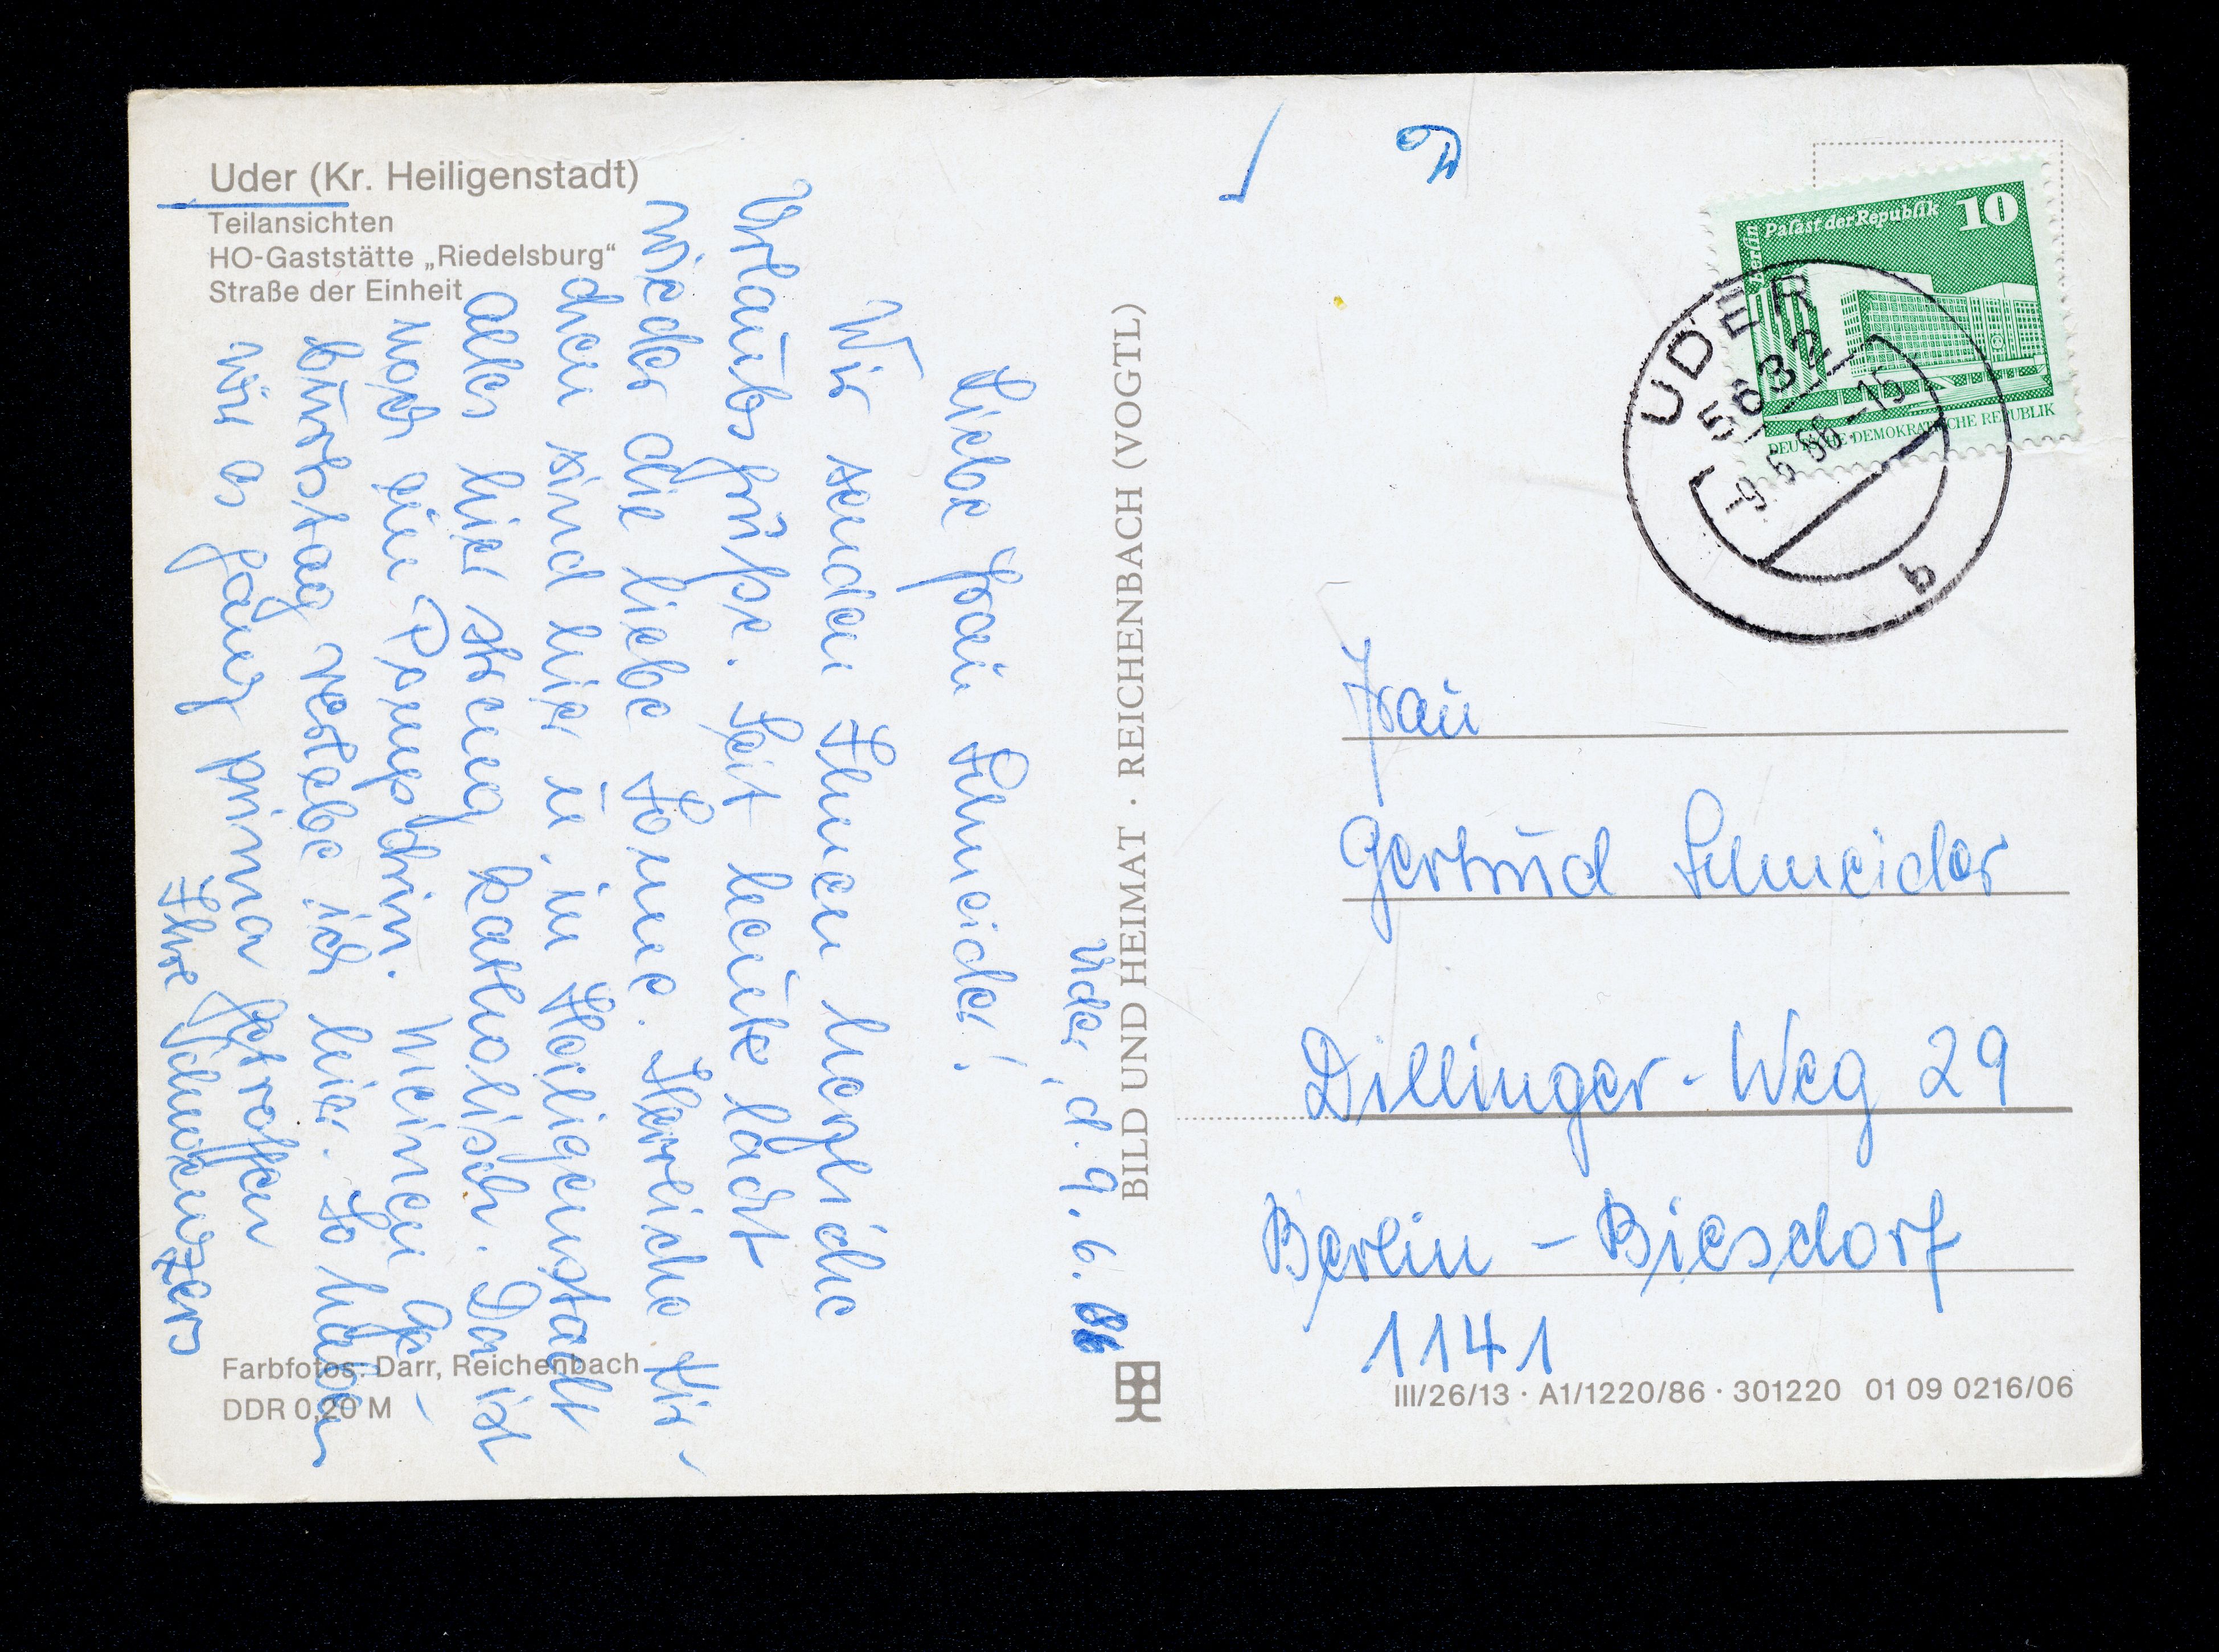 Uder (Kr. Heiligenstadt)
Teilansichten
HO-Gaststätte „Riedelsburg“
Straße der Einheit
Uder, d. 9. 6. 86
Liebe Frau Schneider!
Wir senden Ihnen herzliche
Urlaubsgrüße. Seit heute lacht
wieder die liebe Sonne. Herrliche Kir-
chen sind hier u. in Heiligenstadt
alles hier streng katholisch. Da ist
noch ein Pomp drin. Meinen Ge-
burtstag verlebe ich hier. So haben
wir es ganz prima getroffen
Ihre
Farbfotos: Darr, Reichenbach
DDR 0,20 M
BILD UND HEIMAT · REICHENBACH (VOGTL)
Berlin
Palast der Republik
10
DEUTSCHE DEMOKRATISCHE REPUBLIK
UDER
5632
-15
a
Frau
Gertrud Schneider
Dillinger-Weg 29
Berlin - Biesdorf
1141
III/26/13 · A1/1220/86 · 301220 01 09 0216/06